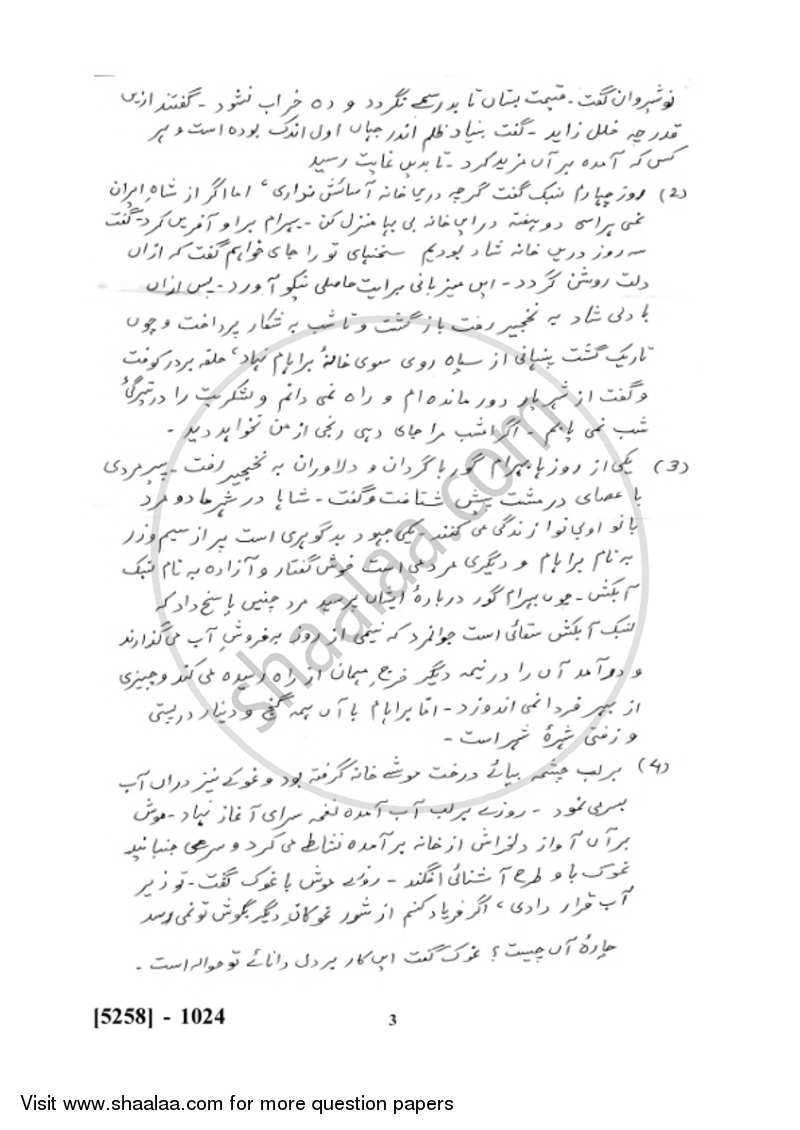 نوشیروان گفت - قیمت بستاں تا بد رسمے نگردد و دہ خراب نشود - گفتند ازیں
قدر چہ خلل زاید - گفت بنیاد ظلم اندر جہاں اول اندک بودہ است و ہر
کس کہ آمدہ بر آں مزید کرد - تا بدیں غایت رسید
(2) روز چہارم لنبک گفت گرچہ دریں خانہ آسائش نداری، اما اگر از شاہِ ایران
نمی ہراسی دو ہفتہ در ایں خانہ بی بہا منزل کن - بہرام بر او آفریں کرد - گفت
سہ روز دریں خانہ شاد بودیم سخنہای تو را جای خواہم گفت کہ ازاں
دلت روشن گردد - ایں میزبانی برایت حاصلی نیکو آورد - پس ازاں
با دلی شاد بہ نخجیر رفت باز گشت و تا شب بہ شکار پرداخت و چوں
تاریک گشت پنہانی از سپاہ روی سوی خانۂ براہام نہاد، حلقہ بر در کوفت
و گفت از شہریار دور ماندہ ام و راہ نمی دانم و لشکریت را در تیرگیٔ
شب نمی یابم - اگر امشب مرا جای دہی رنجی از من نخواہد دید -
(3) یکی از روزہا بہرام گور با گردان و دلاوران بہ نخجیر رفت - پیر مردی
با عصای در مشت پیش شتافت و گفت - شاہا در شہر ما دو مرد
با نوا و بی نوا زندگی می کنند - یکی جہود بد گوہری است پر از سیم و زر
بہ نام براہام و دیگری مردی است خوش گفتار و آزادہ بہ نام لنبک
آبکش - چوں بہرام گور دربارۂ ایشاں پرسید مرد چنیں پاسخ داد کہ
لنبک آبکش سقائی است جوانمرد کہ نیمی از روز بہ فروشِ آب می گذارند
و درآمد آں را در نیمہ دیگر خرج مہمان از راہ رسیدہ می کند و چیزی
از بہر فردا نمی اندوزد - امّا براہام با آں ہمہ گنج و دینار در پستی
و زفتی شہرۂ شہر است -
(4) بر لب چشمہ بپائے درخت موشے خانہ گرفتہ بود و غوکے نیز دراں آب
بسر می نمود - روزے بر لب آب آمدہ نغمہ سرای آغاز نہاد - موش
بر آں آواز دلخراش از خانہ بر آمدہ نشاط می کرد و سر می جنبانید
غوک با و طرح آشنائی افگند - روزے موش با غوک گفت - تو زیر
آب قرار دادی، اگر فریاد کنم از شور غوکانِ دیگر بگوش تو نمی رسد
چارۂ آں چیست؟ غوک گفت ایں کار بر دل دانائے تو حوالہ است -
[5258] - 1024
3
shaalaa.com
Visit www.shaalaa.com for more question papers